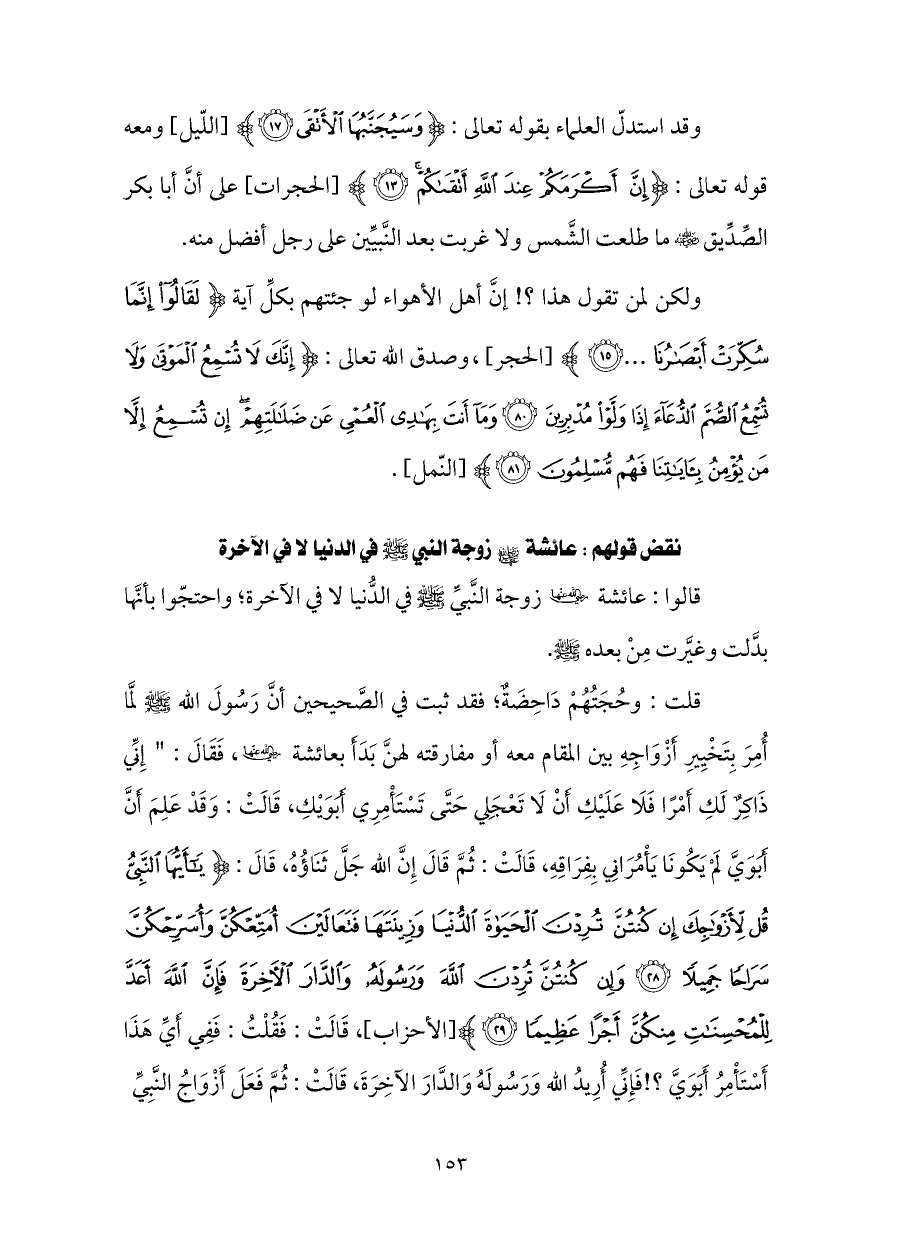 وقد استدلّ العلماء بقوله تعالى : ﴿ وَسَيُجَنَّبُهَا ٱلْأَتْقَى ۝١٧ ﴾ [اللّيل] ومعه
قوله تعالى : ﴿ إِنَّ أَكْرَمَكُمْ عِندَ ٱللَّهِ أَتْقَىٰكُمْ ۚ ۝١٣ ﴾ [الحجرات] على أنَّ أبا بكر
الصِّدِّيق رضي الله عنه ما طلعت الشَّمس ولا غربت بعد النَّبيِّين على رجل أفضل منه.
ولكن لمن تقول هذا ؟! إنَّ أهل الأهواء لو جئتهم بكلِّ آية ﴿ لَقَالُوٓا۟ إِنَّمَا
سُكِّرَتْ أَبْصَـٰرُنَا ... ۝١٥ ﴾ [الحجر] ، وصدق الله تعالى : ﴿ إِنَّكَ لَا تُسْمِعُ ٱلْمَوْتَىٰ وَلَا
تُسْمِعُ ٱلصُّمَّ ٱلدُّعَآءَ إِذَا وَلَّوْا۟ مُدْبِرِينَ ۝٨٠ وَمَآ أَنتَ بِهَـٰدِى ٱلْعُمْىِ عَن ضَلَـٰلَتِهِمْ ۖ إِن تُسْمِعُ إِلَّا
مَن يُؤْمِنُ بِـَٔايَـٰتِنَا فَهُم مُّسْلِمُونَ ۝٨١ ﴾ [النّمل] .
نقض قولهم : عائشة رضي الله عنها زوجة النبي ﷺ في الدنيا لا في الآخرة
قالوا : عائشة رضي الله عنها زوجة النَّبيِّ ﷺ في الدُّنيا لا في الآخرة؛ واحتجّوا بأنَّها
بدَّلت وغيَّرت مِنْ بعده ﷺ.
قلت : وحُجَتُهُمْ دَاحِضَةٌ؛ فقد ثبت في الصَّحيحين أنَّ رَسُولَ الله ﷺ لَمَّا
أُمِرَ بِتَخْيِيرِ أَزْوَاجِهِ بين المقام معه أو مفارقته لهنَّ بَدَأَ بعائشة رضي الله عنها ، فَقَالَ : " إِنِّي
ذَاكِرٌ لَكِ أَمْرًا فَلَا عَلَيْكِ أَنْ لَا تَعْجَلِي حَتَّى تَسْتَأْمِرِي أَبَوَيْكِ، قَالَتْ : وَقَدْ عَلِمَ أَنَّ
أَبَوَيَّ لَمْ يَكُونَا يَأْمُرَانِي بِفِرَاقِهِ، قَالَتْ : ثُمَّ قَالَ إِنَّ الله جَلَّ ثَنَاؤُهُ، قَالَ : ﴿ يَـٰٓأَيُّهَا ٱلنَّبِىُّ
قُل لِّأَزْوَٰجِكَ إِن كُنتُنَّ تُرِدْنَ ٱلْحَيَوٰةَ ٱلدُّنْيَا وَزِينَتَهَا فَتَعَالَيْنَ أُمَتِّعْكُنَّ وَأُسَرِّحْكُنَّ
سَرَاحًا جَمِيلًا ۝٢٨ وَإِن كُنتُنَّ تُرِدْنَ ٱللَّهَ وَرَسُولَهُۥ وَٱلدَّارَ ٱلْـَٔاخِرَةَ فَإِنَّ ٱللَّهَ أَعَدَّ
لِلْمُحْسِنَـٰتِ مِنكُنَّ أَجْرًا عَظِيمًا ۝٢٩ ﴾[الأحزاب]، قَالَتْ : فَقُلْتُ : فَفِي أَيِّ هَذَا
أَسْتَأْمِرُ أَبَوَيَّ ؟!فَإِنِّي أُرِيدُ الله وَرَسُولَهُ وَالدَّارَ الآخِرَةَ، قَالَتْ : ثُمَّ فَعَلَ أَزْوَاجُ النَّبِيِّ
١٥٣